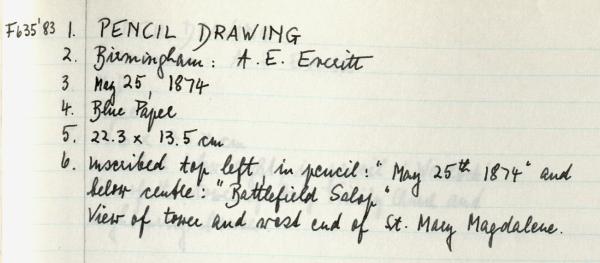 F635'83 1. PENCIL DRAWING
2. Birmingham: A. E. Everitt
3 May 25, 1874
4. Blue Paper
5. 22.3 x 13.5 cm
6. Inscribed top left, in pencil: "May 25th 1874" and
below centre: "Battlefield Salop"
View of tower and west end of St. Mary Magdalene.